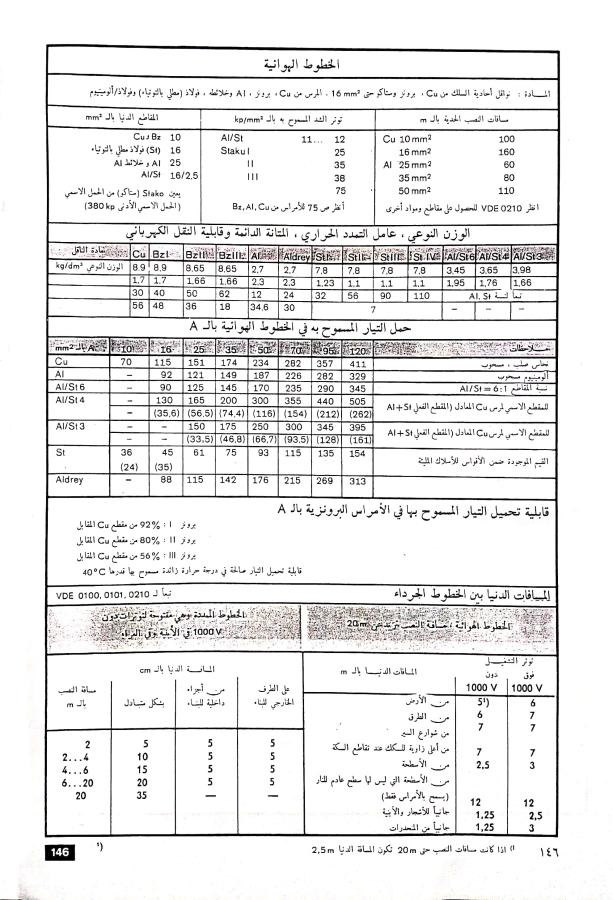 الخطوط الهوائية
المـادة : نواقل أحادية السلك من Cu ، برونز وستاكو حتى 16 mm² . المرس من Cu، برونز ، Al وخلائطه ، فولاذ (مطلي بالتوتياء) وفولاذ/ألومينيوم
مسافات النصب الحدية بالـ m
Cu 10 mm² 100
16 mm² 160
Al 25 mm² 60
35 mm² 80
50 mm² 110
انظر VDE 0210 للحصول على مقاطع ومواد أخرى
توتر الشد المسموح به بالـ kp/mm²
Al/St 11... 12
Staku I 25
II 35
III 38
75
أنظر ص 75 للأمراس من Bz, Al, Cu
المقاطع الدنيا بالـ mm²
Cu و Bz 10
(St) فولاذ مطلي بالتوتياء 16
Al و خلائط Al 25
Al/St 16/2.5
يعين Stako (ستاكو) من الحمل الاسمي
(الحمل الاسمي الأدنى 380 kp)
الوزن النوعي ، عامل التمدد الحراري ، المتانة الدائمة وقابلية النقل الكهربائي
مادة الناقل Cu Bz I Bz II Bz III Al Aldrey St I St II St III St IV Al/St6 Al/St4 Al/St3
الوزن النوعي kg/dm³ 8.9 8,9 8.65 8.65 2,7 2,7 7,8 7.8 7,8 7,8 3,45 3.65 3,98
1,7 1.7 1,66 1.66 2.3 2.3 1,23 1.1 1.1 1.1 1,95 1,76 1,66
30 40 50 62 12 24 32 56 90 110 تبعاً لنسبة Al, St
56 48 36 18 34.6 30 7 – – –
حمل التيار المسموح به في الخطوط الهوائية بالـ A
A بالـ mm² 10 16 25 35 50 70 95 120 ملاحظات
Cu 70 115 151 174 234 282 357 411 نحاس صلب ، مسحوب
Al – 92 121 149 187 226 282 329 ألومينيوم مسحوب
Al/St 6 – 90 125 145 170 235 290 345 نسبة المقاطع Al/St = 6:1
Al/St 4 – 130 165 200 300 355 440 505 للمقطع الاسمي لمرس Cu المعادل (المقطع الفعلي Al+St)
– (35,6) (56,5) (74,4) (116) (154) (212) (262)
Al/St 3 – – 150 175 250 300 345 395 للمقطع الاسمي لمرس Cu المعادل (المقطع الفعلي Al+St)
– – (33,5) (46,8) (66,7) (93,5) (128) (161)
St 36 45 61 75 93 115 135 154 القيم الموجودة ضمن الأقواس للأسلاك المليئة
(24) (35)
Aldrey – 88 115 142 176 215 269 313
قابلية تحميل التيار المسموح بها في الأمراس البرونزية بالـ A
برونز I : 92% من مقطع Cu المقابل
برونز II : 80% من مقطع Cu المقابل
برونز III : 56% من مقطع Cu المقابل
قابلية تحميل التيار صالحة في درجة حرارة زائدة مسموح بها قدرها 40°C
المسافات الدنيا بين الخطوط الجرداء تبعاً لـ VDE 0100, 0101, 0210
الخطوط الهوائية ، مسافة النصب تزيد على 20 m
المسافات الدنيا بالـ m
توتر التشغيل
دون 1000 V فوق 1000 V
من الأرض 5¹) 6
من الطرق 6 7
من شوارع السير 7 7
من أعلى زاوية للسكك عند تقاطع السكة 7 7
من الأسطحة 2,5 3
من الأسطحة التي ليس لها سطح عادم للنار
(يسمح بالأمراس فقط) 12 12
جانبياً للأشجار والأبنية 1,25 2,5
جانبياً من المنحدرات 1,25 3
الخطوط الممددة وهي مفتوحة لتوترات دون
1000 V في الأبنية وفي العراء
المسافة الدنيا بالـ cm
مسافة النصب بالـ m
بشكل متبادل
من أجزاء داخلية للبناء
على الطرف الخارجي للبناء
2 5 5 5
2...4 10 5 5
4...6 15 5 5
6...20 20 5 5
20 35 — —
¹) اذا كانت مسافات النصب حتى 20 m تكون المسافة الدنيا 2,5 m
¹)
146
١٤٦